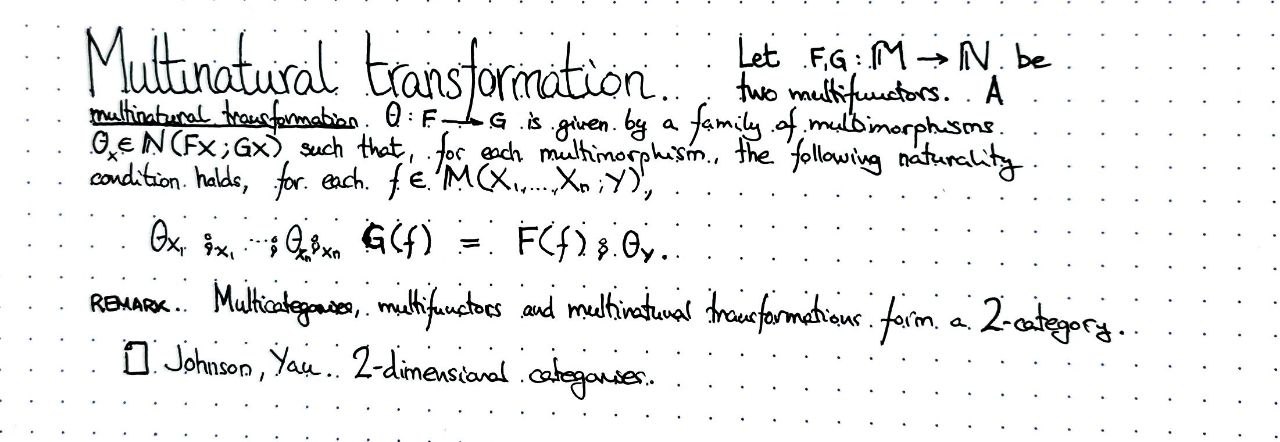 Multinatural transformation.
Let F,G : 𝕄 → ℕ be
two multifunctors. A
multinatural transformation θ : F → G is given by a family of multimorphisms
θ_X ∈ ℕ(FX; GX) such that, for each multimorphism, the following naturality
condition holds, for each f ∈ 𝕄(X₁,...,Xₙ; Y),
θ_X₁ ⨾_X₁ ... ⨾ θ_Xₙ ⨾_Xₙ G(f) = F(f) ⨾ θ_Y.
REMARK. Multicategories, multifunctors and multinatural transformations form a 2-category.
Johnson, Yau. 2-dimensional categories.